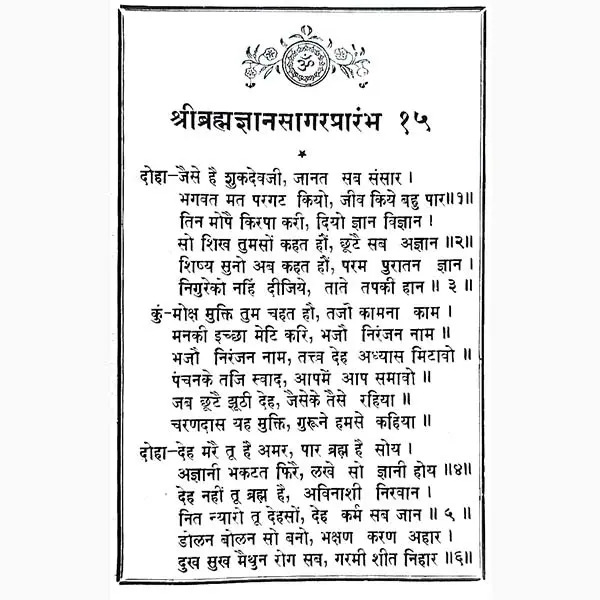 ॐ
श्रीब्रह्मज्ञानसागरप्रारंभ १५
दोहा–जैसे है शुकदेवजी, जानत सब संसार ।
भगवत मत परगट कियो, जीव किये बहु पार॥१॥
तिन मोपै किरपा करी, दियो ज्ञान विज्ञान ।
सो शिख तुमसों कहत हौं, छूटै सब अज्ञान ॥२॥
शिष्य सुनो अब कहत हौं, परम पुरातन ज्ञान ।
निगुरेको नहिं दीजिये, ताते तपकी हान ॥ ३ ॥
कुं-मोक्ष मुक्ति तुम चहत हौ, तजौ कामना काम ।
मनकी इच्छा मेटि करि, भजौ निरंजन नाम ॥
भजौ निरंजन नाम, तत्त्व देह अध्यास मिटावो ॥
पंचनके तजि स्वाद, आपमें आप समावो ॥
जब छूटै झूठी देह, जैसेके तैसे रहिया ॥
चरणदास यह मुक्ति, गुरूने हमसे कहिया ॥
दोहा–देह मरै तू है अमर, पार ब्रह्म है सोय ।
अज्ञानी भकटत फिरै, लखे सो ज्ञानी होय ॥४॥
देह नहीं तू ब्रह्म है, अविनाशी निरवान ।
नित न्यारो तू देहसों, देह कर्म सब जान ॥ ५ ॥
डोलन बोलन सो बनो, भक्षण करण अहार ।
दुख सुख मैथुन रोग सब, गरमी शीत निहार ॥६॥